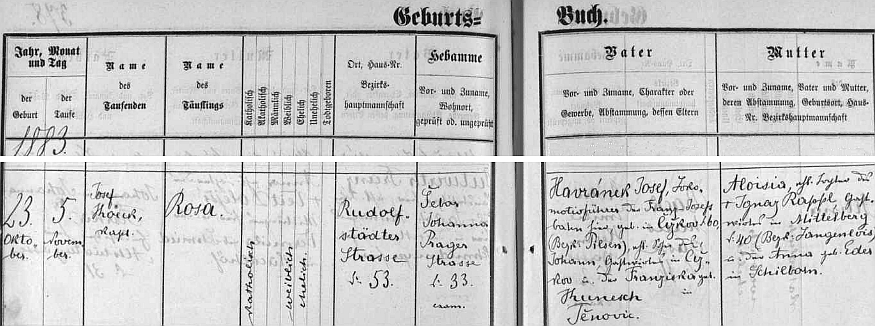 Geburts= Buch.
Jahr, Monat und Tag
der Geburt
der Taufe
Name des Taufenden
Name des Täuflings
Katholisch
Akatholisch
Männlich
Weiblich
Ehelich
Unehelich
Todtgeboren
Ort, Haus-Nr. Bezirks- hauptmannschaft
Hebamme
Vor- und Zuname, Wohnort, geprüft od. ungeprüft
Vater
Vor- und Zuname, Charakter oder Gewerbe, Abstammung, dessen Eltern
Mutter
Vor- und Zuname, Vater und Mutter, deren Abstammung, Geburtsort, Haus- Nr. Bezirkshauptmannschaft
1883.
23.
Okto-
ber.
5.
Novem-
ber.
Josef
Kapl.
Rosa.
katholisch
weiblich
ehelich.
Rudolf-
städter
Strasse
No. 53.
Johanna
Prager
Strasse
No. 33.
exam.
Havránek Josef, Loko-
motivführer der Franz Josefs
bahn hier, geb. in
(Bezk. Pilsen), ehl. Sohn des
Johann, Gastwirthes in
u. der Franziska geb.
in
Těnovic.
Aloisia, ehl. Tochter des
+ Ignaz Rappl, Gast-
wirthes in Mittelberg
No. 40 (Bezk. Langenlois)
u. der Anna geb. Eder
in Schiltorn.